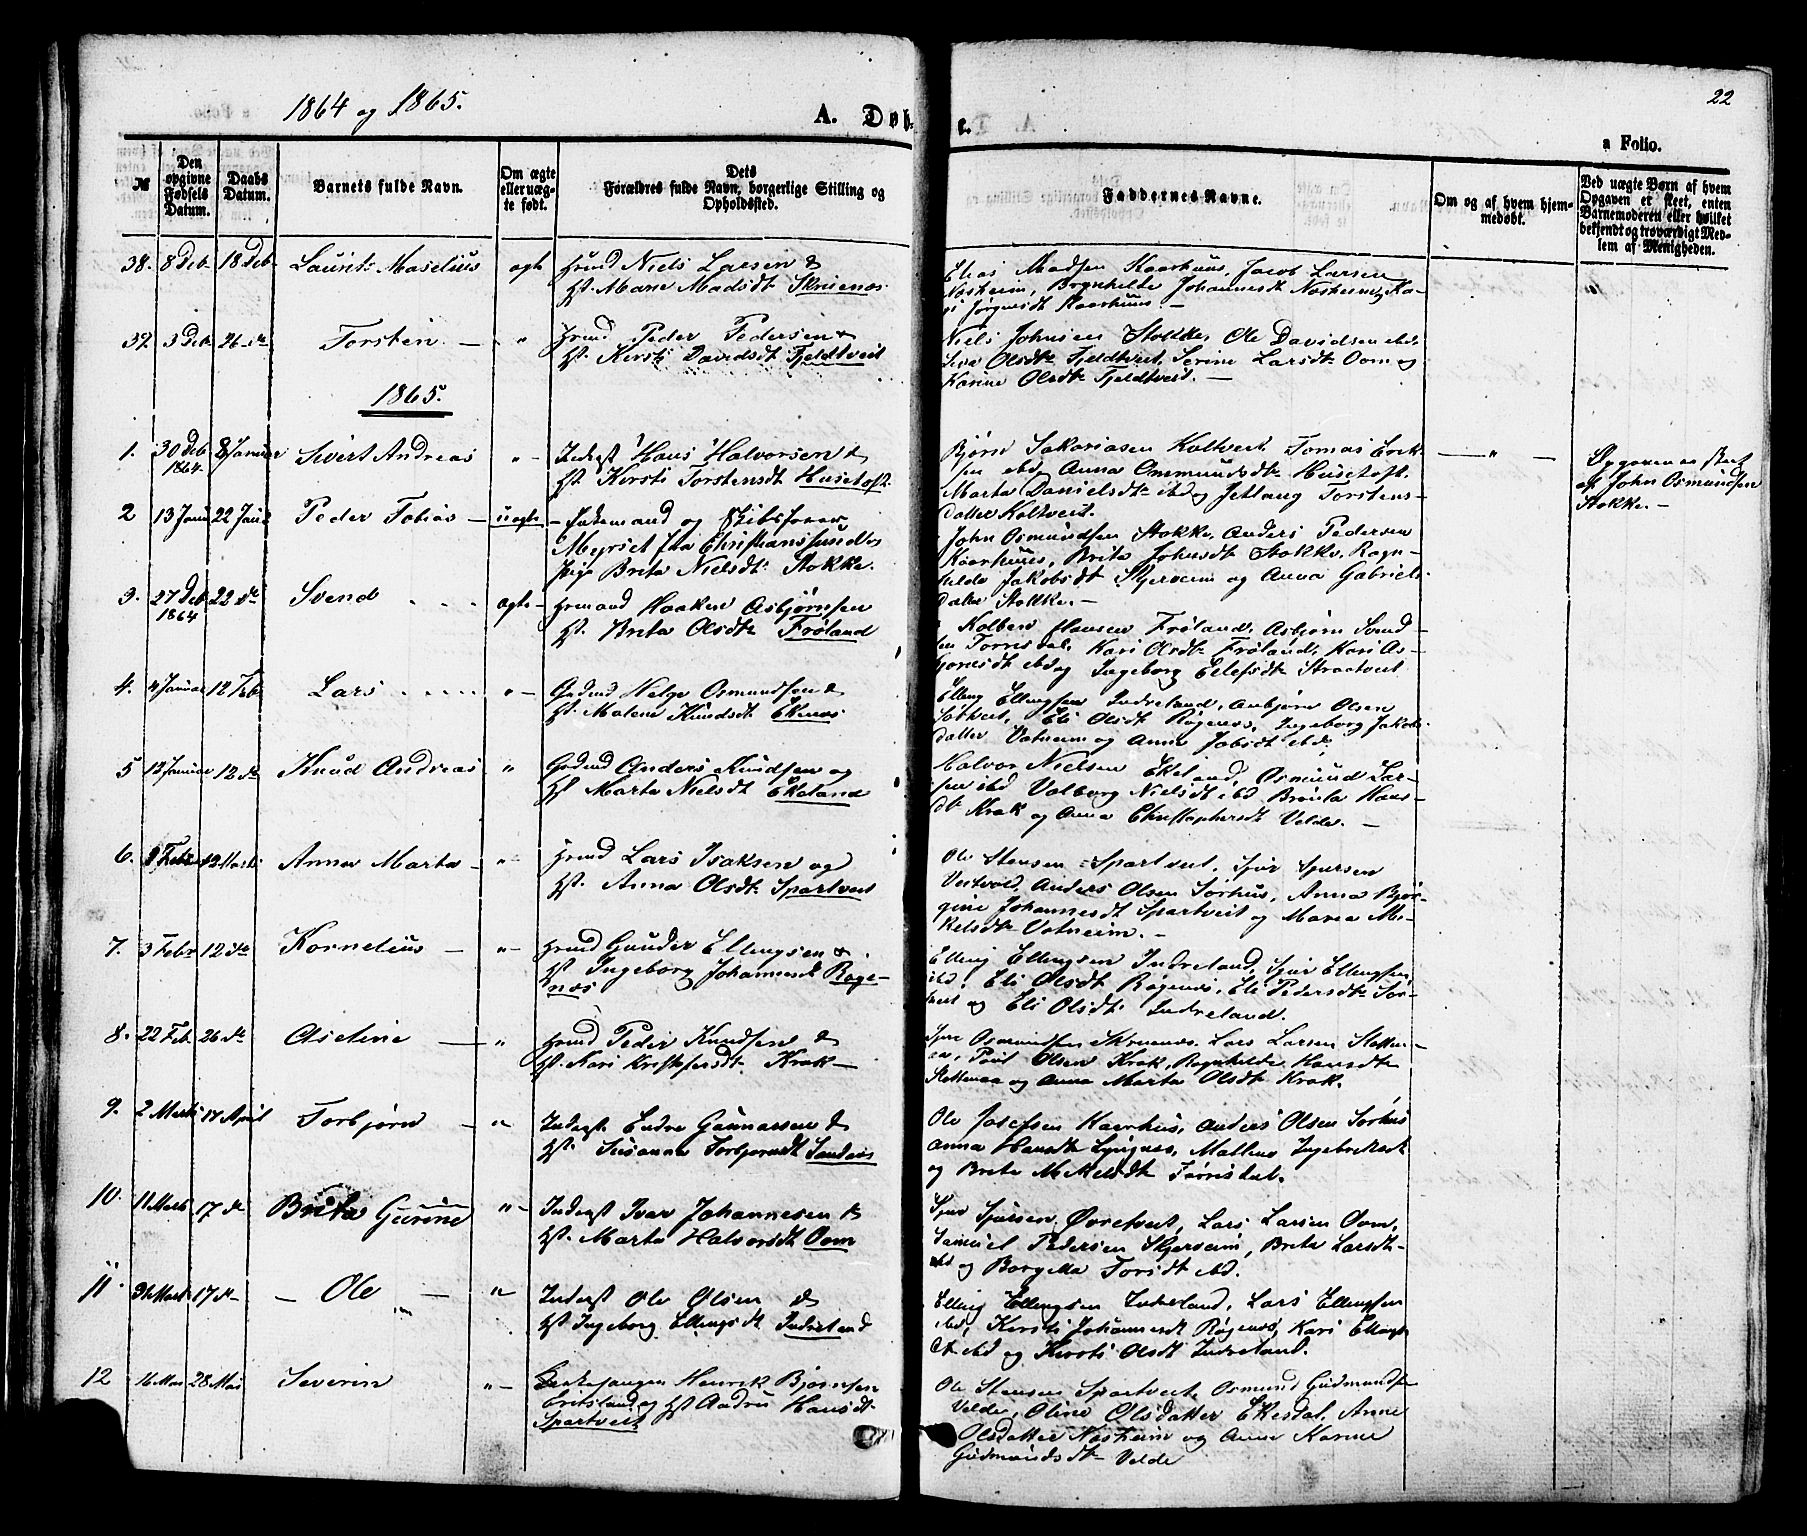 1864 og 1865.
A. Døb-
t.
22
a Folio.
№
Den opgivne Fødsels Datum.
Daabs Datum.
Barnets fulde Navn.
Om ægte eller uægte født.
Dets Forældres fulde Navn, borgerlige Stilling og Opholdssted.
Faddernes Navne.
Om og af hvem hjemmedøbt.
Ved uægte Børn af hvem Opgaven er skeet, enten Barnemoderen eller hvilket bekjendt og troværdigt Medlem af Menigheden.
38. 8 Deb 18 Deb Laurits Maselius ægte Hrmd Niels Larsen &
Hst. Mane Madsdt Skruenæs.
Elias Madsen Kaarhuus, Jacob Larsen
Næsheim, Brynhilde Johannesdt Næsheim, Ka-
ri Jørgnsdt Kaarhuus —
39. 3 Deb 26 - de Torsten — " Hrmd Peder Pedersen &
Hst. Kersti Davidsdt Fjeldtveit
Niels Johnsen Stokke, Ole Davidsen ibd.
Siva Olsdt Fjeldtveit, Serine Larsdt Oom og
Karine Olsdt Fjeldtveit. —
1865.
1. 30 Deb 1864. 8 Januar Sivert Andreas " Inderst Hans Halvorsen &
Hst Kersti Torstensdt Husetoft.
Bjørn Sakariasen Koltveit Tomas Erik-
sen ibd, Anna Ommundsdt Husetoft.
Marta Danielsdt ibd og Jetlaug Torstens-
datter Koltveit.
— " —
Opgaven er skeet
af John Osmundsen
Stokke. —
2 13 Janu 22 Janu Peder Tobias — uægte — Enkemand og Skibsfører
Meyrset fra Christianssund &
Pige Brita Nielsdt. Stokke.
John Osmundsen Stokke, Anders Pedersen
Kaarhuus, Brita Johnsdt Stokke, Ragn-
hilde Jakobsdt Skjerveim og Anna Gabriels-
datter Stokke. —
3. 27 Deb 1864 22 de Svend . . . . ægte — Hrmand Haaken Asbjørnsen
Hst. Brita Olsdt Frøland
Kolben Hansen Frøland, Asbjørn Svend-
sen Torrisdal, Kari Olsdt Frøland, Kari As-
bjørnsdt ibd og Ingeborg Eilefsdt Straatveit
4. 4 Januar 12 Feb Lars . . . . . " — Gadmd Helge Osmundsen &
Hst. Malene Knudsdt Ekenæs
Elling Ellingsen Indreland, Anbjørn Olsen
Søtveit, Eli Olsdt Røgenæs, Ingeborg Jakobs-
datter Vatneim og Anna Jobsdt ibd.
5 12 Januar 12 de Knud Andreas " Gadmd Anders Knudsen og
Hst Marta Nielsdt Ekeland
Halvor Nielsen Ekeland, Osmund Lar-
sen ibd Valborg Nielsdt ibd Bronla Hans-
dt Krak og Anna Christophersdt Velde. —
6. 9 Febr 12 Marts Anna Marta — " — Hrmd Lars Isaksen og
Hst. Anna Olsdt Spartveit
Ole Stensen Spartveit, Sjur Sjursen
Vestvold, Anders Olsen Sørhus, Anna Bjør-
gine Johannesdt Spartveit og Maria Mi-
kelsdt Vatneim. —
7. 3 Febr 12 de Kornelius — " — Hrmd Gunder Ellingsen &
Hst Ingeborg Johannesdt Røge-
næs
Elling Ellingsen Indreland, Sjur Ellingsen
ibd, Eli Olsdt Røgenæs, Eli Pedersdt Sør-
tveit og Eli Olsdt Indreland.
8. 22 Feb. 26 de Aseline — " Hrmd Peder Knudsen &
Hst. Kari Kristofersdt. Krak —
Sjur Osmundsen Skruenæs. Lars Larsen Slotten-
aa, Povl Olsen Krak, Ragnhilde Hansdt
Slottenaa og Anna Marta Olsdt Krak.
9. 2 Marts 17 April Torbjørn — " Inderst. Endre Gunnarsen &
Hst. Susanna Torbjørnsdt Sandvis
Ole Josefsen Kaarhus, Anders Olsen Sørhus
Anna Hansdt Lyngnes, Mallene Ingebretsdt
og Brita Mikelsdt Førrisdal.
10. 11 Marts 17 de Brita Gurine " — Inderst Ivar Johannesen &
Hst. Marta Halvorsdt Oom
Sjur Sjursen Øvretveit, Lars Larsen Oom,
Samuel Pedersen Skjerveim, Brita Larsdt
ibd og Borgilla Torsdt ibd.
11. 31 Marts 17 de — Ole — " Inderst Ole Olsen &
Hst Ingeborg Ellingsdt Indreland
Elling Ellingsen Indreland, Lars Ellingsen
ibd, Kersti Johannesdt Røgenæs, Kari Ellings-
dt ibd og Kersti Olsdt Indreland.
12 16 Mai 28 Mai Severin " — Kirkesanger Henrik Bjørnsen
Eritsland og Hst Andru Hansdt.
Spartveit
Ole Stensen Spartveit, Osmund Gudmunds-
Velde, Oline Olsdatter Ekesdal, Anne
Olsdatter Næsheim og Anne Karine
Gudmundsdt Velde